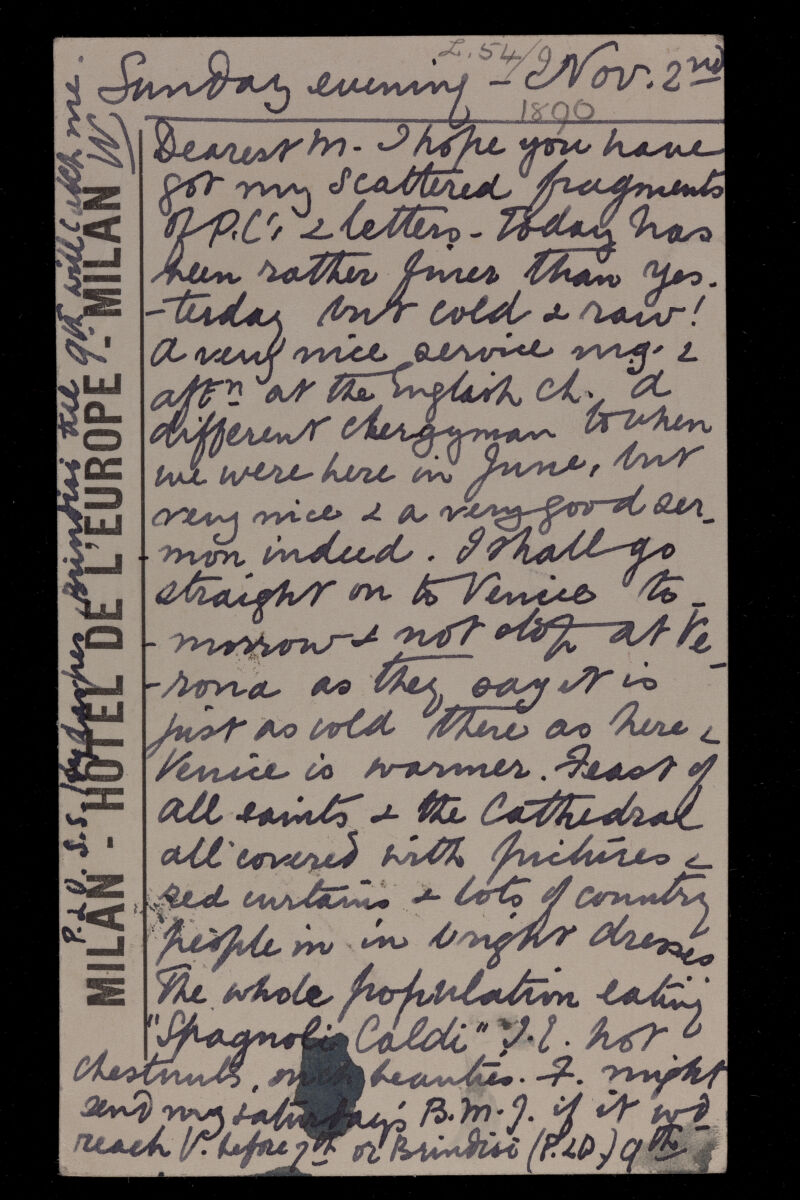 L. 54/9
Sunday evening - Nov. 2nd
1890
Dearest M. I hope you have
got my scattered fragments
of P.C's & letters - Today has
been rather finer than yes-
-terday but cold & raw!
A very nice service mg. &
aftn at the English Ch. a
different chergyman to when
we were here in June, but
very nice & a very good ser-
-mon indeed. I shall go
straight on to Venice to-
-morrow & not stop at Ve-
-rona as they say it is
just as cold there as here &
Venice is warmer. Feast of
all saints & the Cathedral
all covered with pictures &
red curtains & lots of country
people in in bright dresses
The whole population eating
"Spagnoli Caldi" I.E. hot
chestnuts, such beauties. F. might
send my Saturday's B.M.J. if it wd
reach V. before 7th or Brindisi (P.&O.) 9th
P.&O. S.S. Hydaspes, Brindisi till 9th will catch me.
MILAN - HOTEL DE L'EUROPE - MILAN